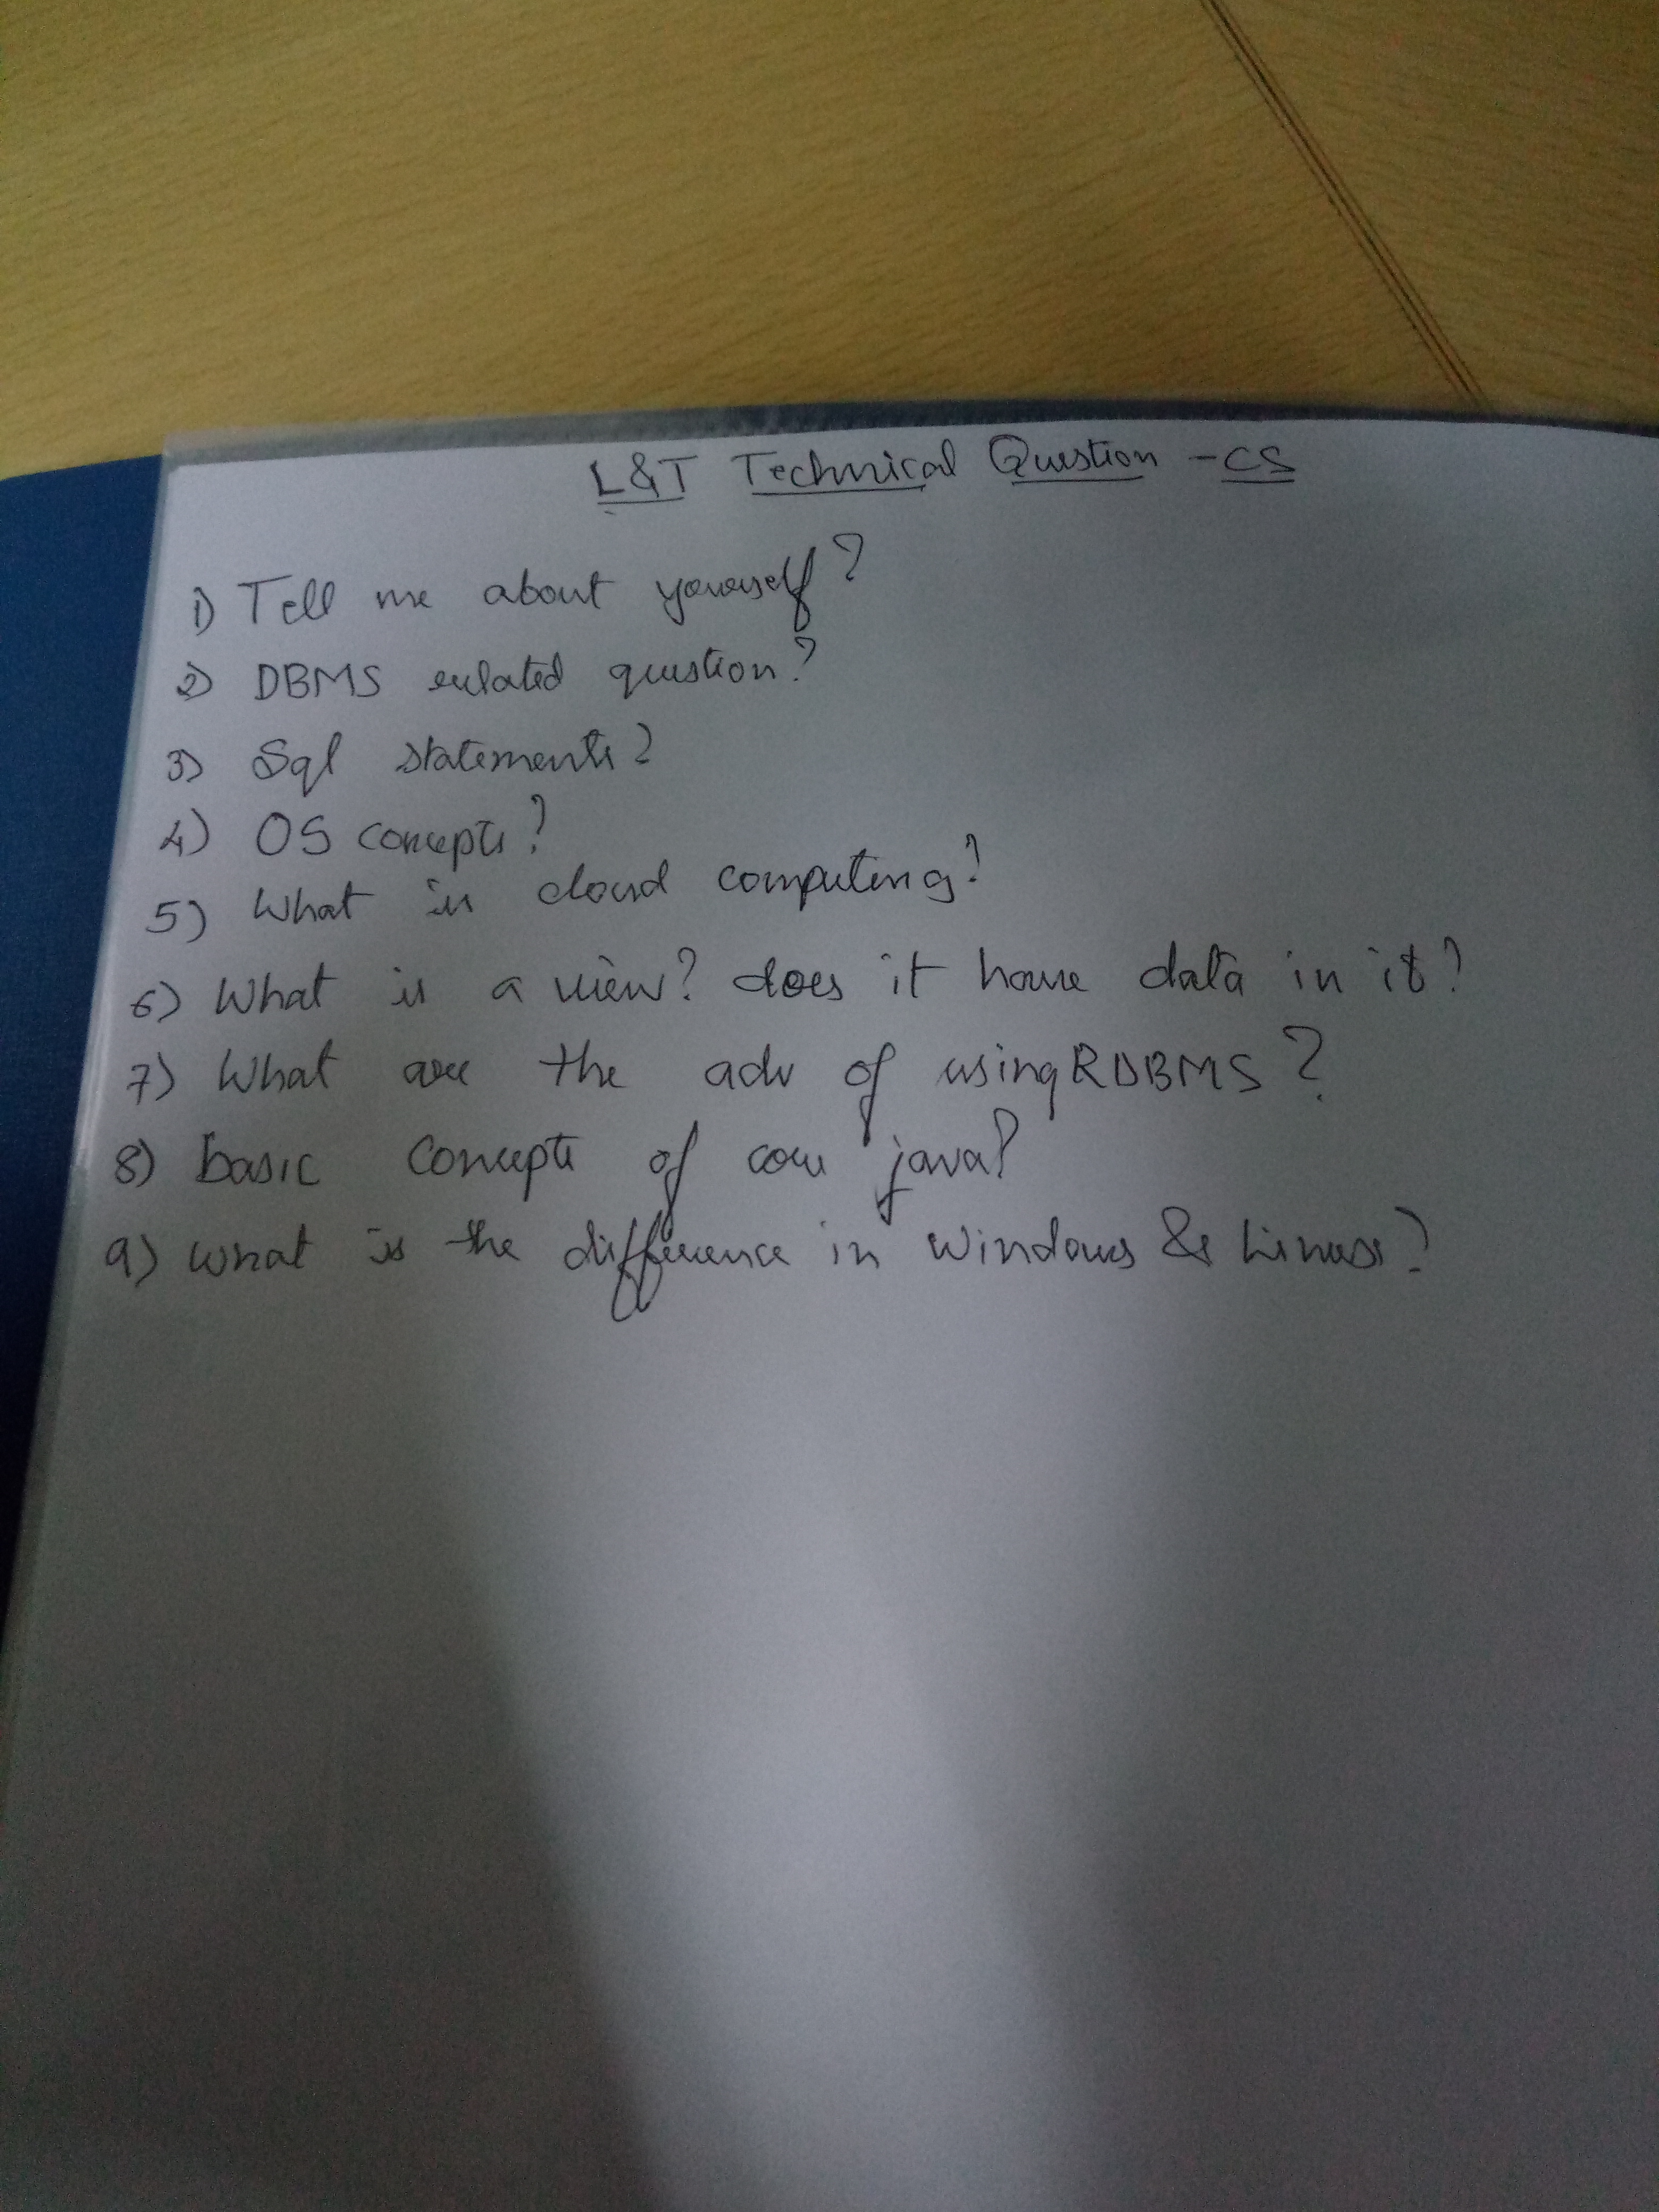 L&T Technical Question - CS
1) Tell me about yourself?
2) DBMS related question?
3) Sql statements?
4) OS concepts?
5) What is cloud computing?
6) What is a view? does it have data in it?
7) What are the adv of using RDBMS?
8) basic concepts of core java?
9) what is the difference in windows & Linux?